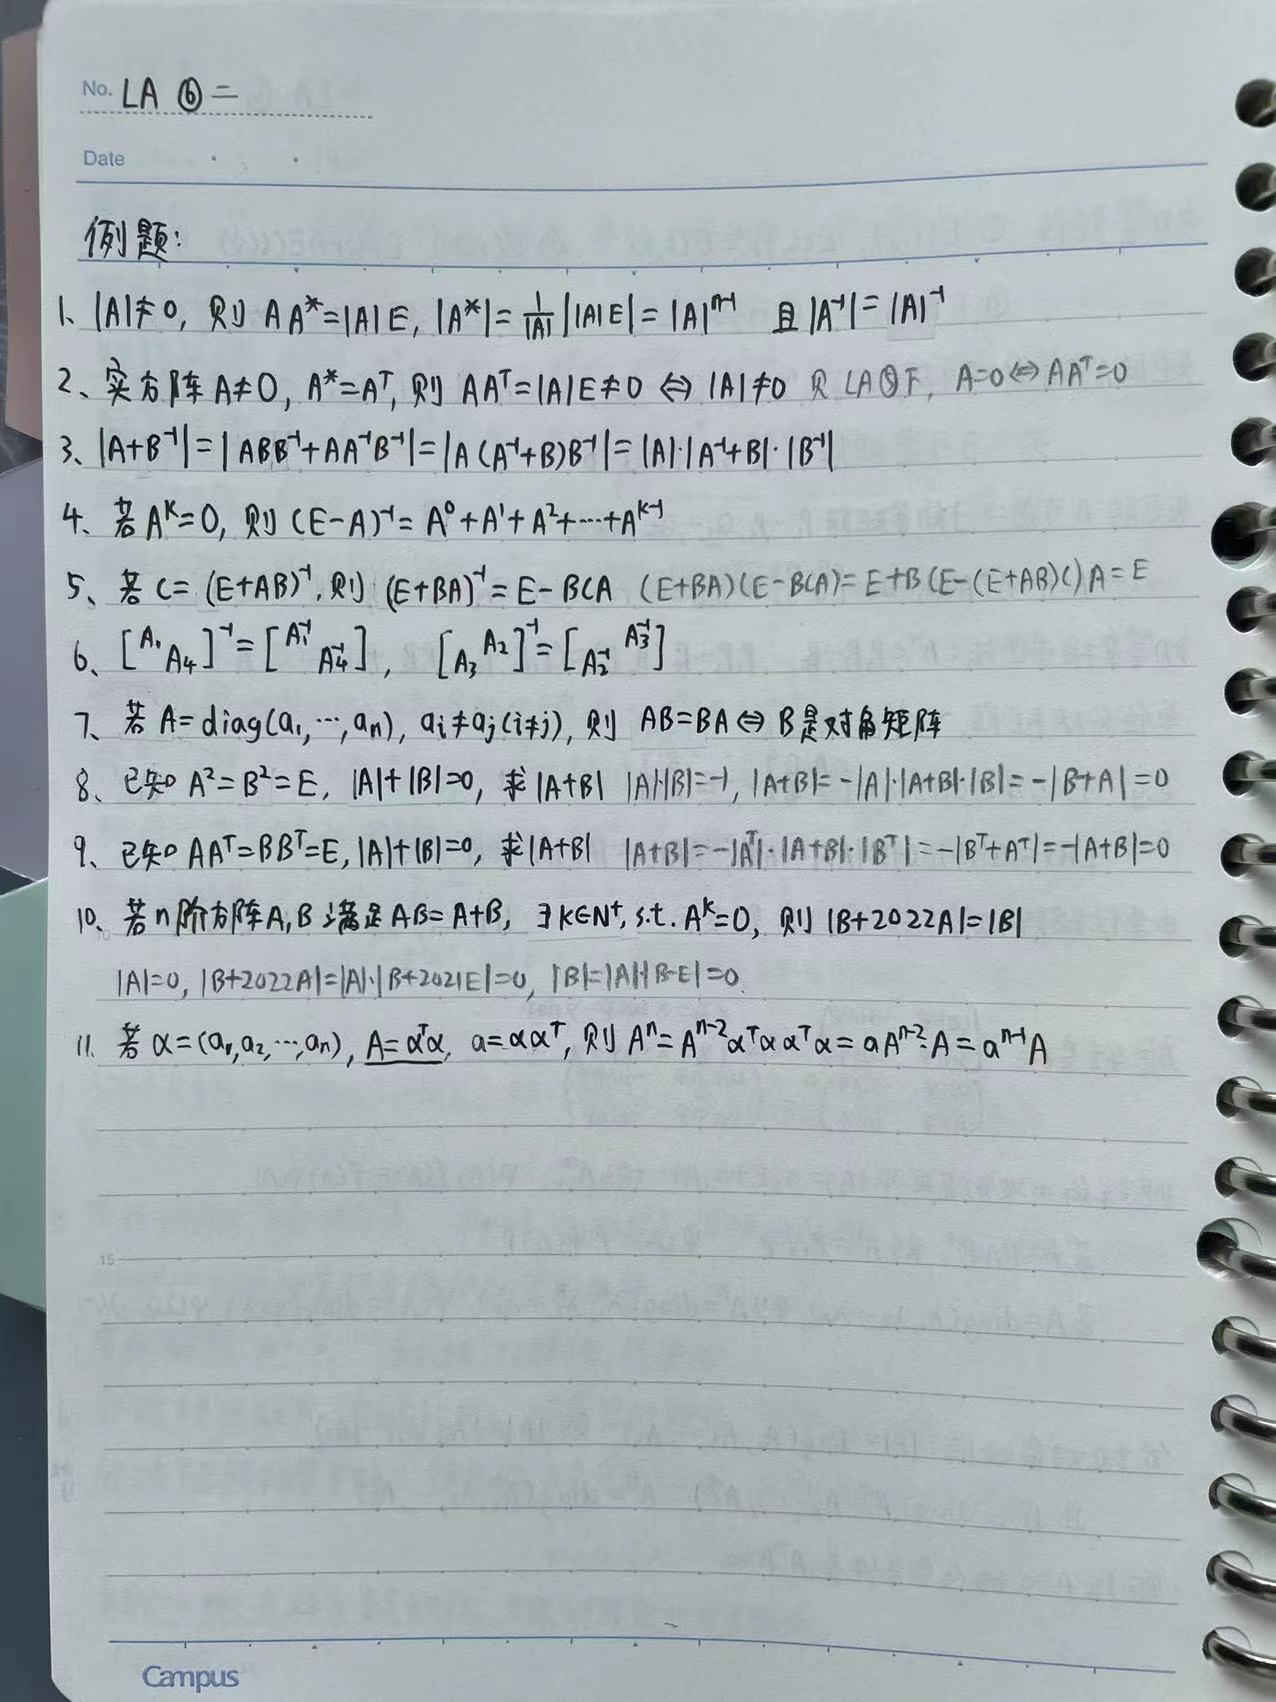 No. LA ⑥ 二
Date
例题:
1、|A|≠0, 则 AA*=|A|E, |A*|=1/|A| ||A|E|=|A|ⁿ⁻¹ 且|A⁻¹|=|A|⁻¹
2、实方阵A≠0, A*=Aᵀ, 则 AAᵀ=|A|E≠0 ⇔ |A|≠0 LA F, A=0⇔AAᵀ=0
3、|A+B⁻¹|=|ABB⁻¹+AA⁻¹B⁻¹|=|A(A⁻¹+B)B⁻¹|=|A|·|A⁻¹+B|·|B⁻¹|
4、若Aᵏ=0, 则 (E-A)⁻¹=A⁰+A¹+A²+…+Aᵏ⁻¹
5、若C=(E+AB)⁻¹, 则 (E+BA)⁻¹=E-BCA (E+BA)(E-BCA)=E+B(E-(E+AB)C)A=E
6、[A₁ A₄]⁻¹=[A₁⁻¹ A₄⁻¹], [A₃ A₂]⁻¹=[A₂⁻¹ A₃⁻¹]
7、若A=diag(a₁,…,aₙ), aᵢ≠aⱼ(i≠j), 则 AB=BA⇔B是对角矩阵
8、已知A²=B²=E, |A|+|B|=0, 求|A+B| |A|·|B|=-1, |A+B|=-|A|·|A+B|·|B|=-|B+A|=0
9、已知AAᵀ=BBᵀ=E, |A|+|B|=0, 求|A+B| |A+B|=-|Aᵀ|·|A+B|·|Bᵀ|=-|Bᵀ+Aᵀ|=-|A+B|=0
10、若n阶方阵A,B满足AB=A+B, ∃k∈N⁺, s.t. Aᵏ=0, 则 |B+2022A|=|B|
|A|=0, |B+2022A|=|A|·|B+2021E|=0, |B|=|A|·|B-E|=0
11、若α=(a₁,a₂,…,aₙ), A=αᵀα, a=ααᵀ, 则 Aⁿ=Aⁿ⁻²αᵀααᵀα=aAⁿ⁻²·A=aⁿ⁻¹A
15
Campus